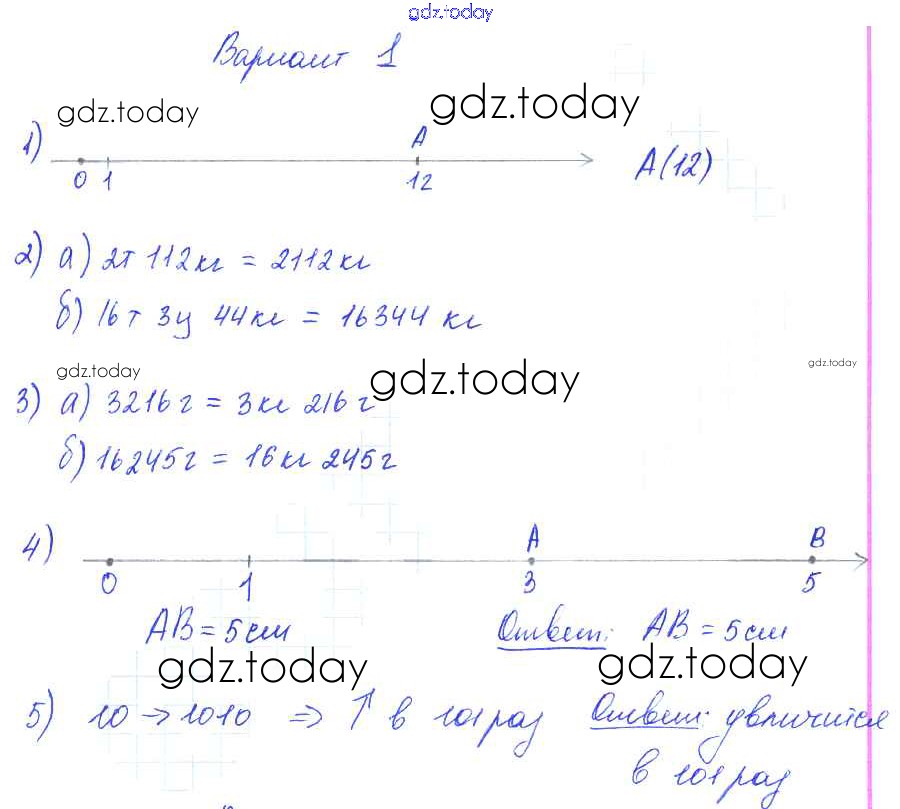 gdz.today
Вариант 1
gdz.today gdz.today
1) A
0 1 12 A(12)
2) а) 2т 112кг = 2112кг
б) 16т 3ц 44кг = 16344 кг
gdz.today gdz.today gdz.today
3) а) 3216г = 3кг 216г
б) 16245г = 16кг 245г
4) A B
0 1 3 5
AB = 5см Ответ: AB = 5см
gdz.today gdz.today
5) 10 → 1010 ⇒ ↑ в 101 раз Ответ: увеличится
в 101 раз